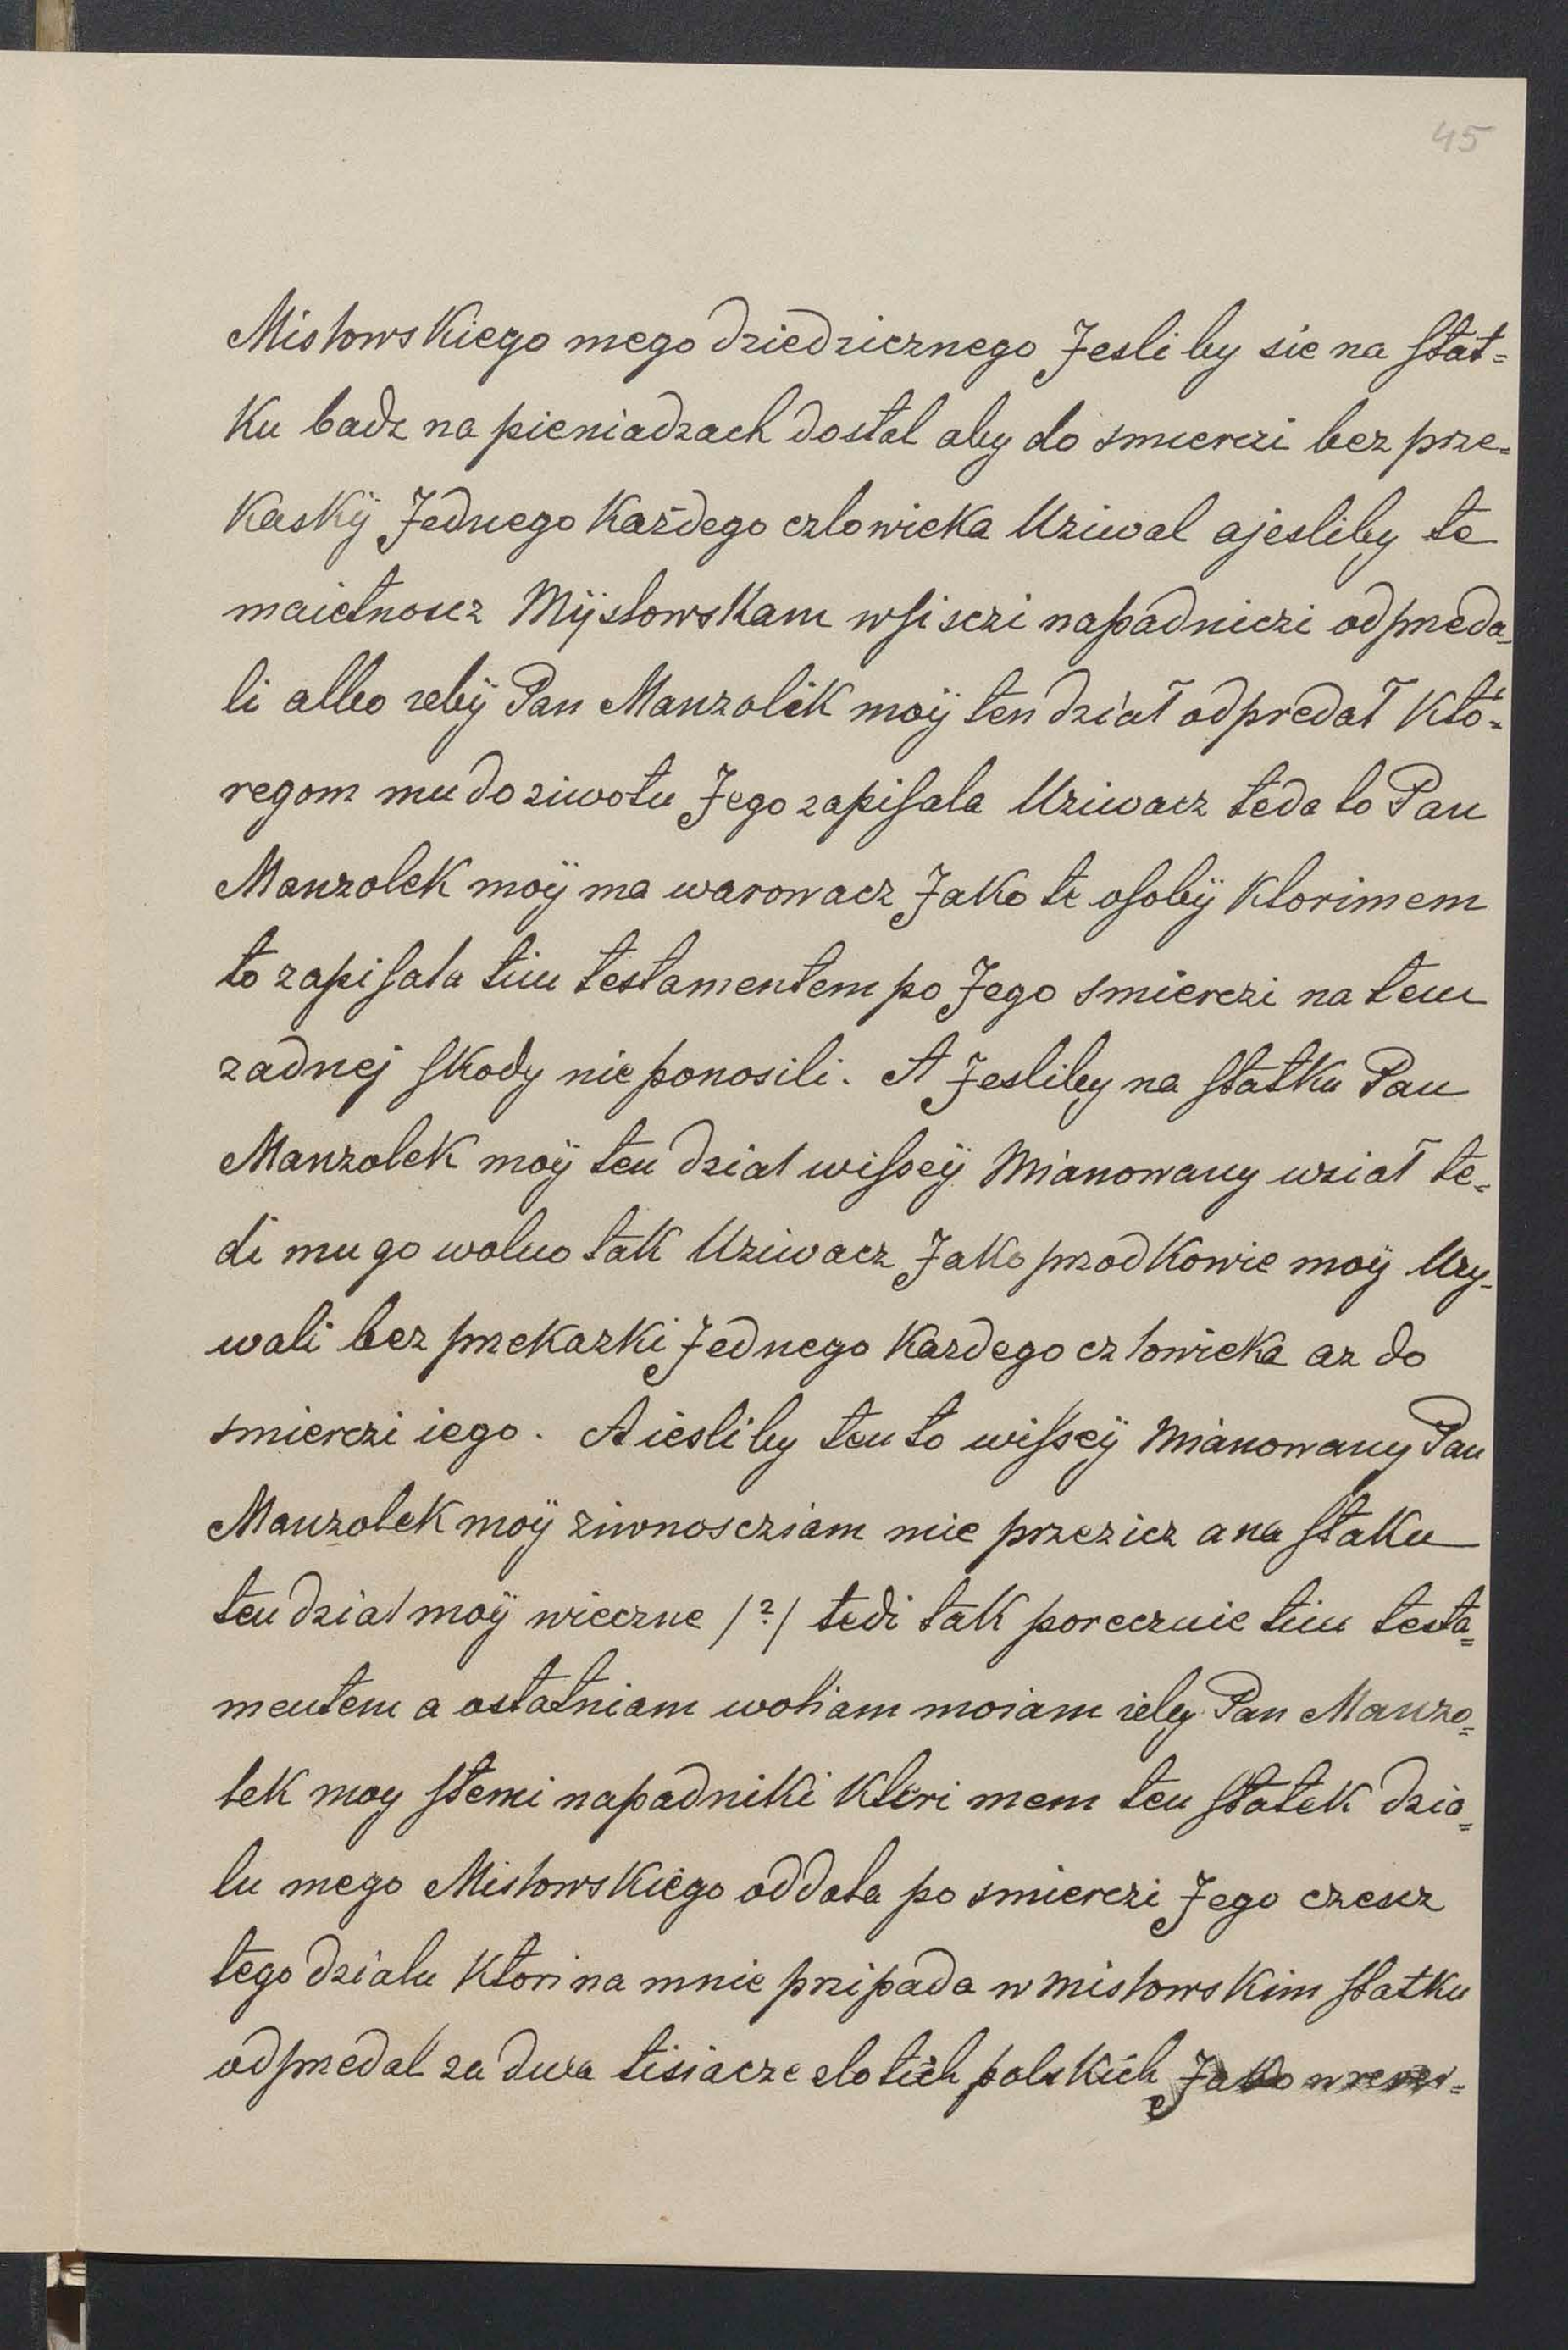 45
Misłowskiego mego dziedzicznego Jesli by sie na ſtat=
ku badz na pieniadzach dostal aby do smierczi bez prze=
kaskÿ Jednego každego czlowieka Uziwal ajesliby te
maietnoscz Mÿsłowskam wſisczi napadniczi odpreda=
li albo zebÿ Pan Manzolik moÿ ten dział odpredał któ=
regom mu do ziwotu Jego zapiſala Uziwacz teda to Pan
Manzolek moÿ ma warowacz Jako te oſobÿ ktorimem
to zapiſała tim testamentem po Jego smierczi na tem
zadnej ſkody nie ponosili. A Jesliby na ſtatku Pan
Manzolek moÿ ten dział wiſseÿ Mianowany wział te=
di mu go wolno tak Uziwacz Jako przodkowie moÿ Uzy-
wali bez przekazki Jednego kazdego człowieka az do
smierczi iego. A iesliby ten to wiſseÿ Mianowany Pan
Manzolek moÿ ziwnoscziam mie przezicz a na ſtaku
ten dział moÿ wieczne /?/ tedi tak porecznie tim testa=
mentem a ostatniam woliam moiam zeby Pan Manzo=
lek moy ſtemi napadniki kteri mem ten ſtatek dzia=
lu mego Misłowskiego oddała po smierczi Jego czescz
tego dzialu ktori na mnie pripada w misłowskim ſtatku
odpredal za dwa tisiacze zlotich polskich Jako